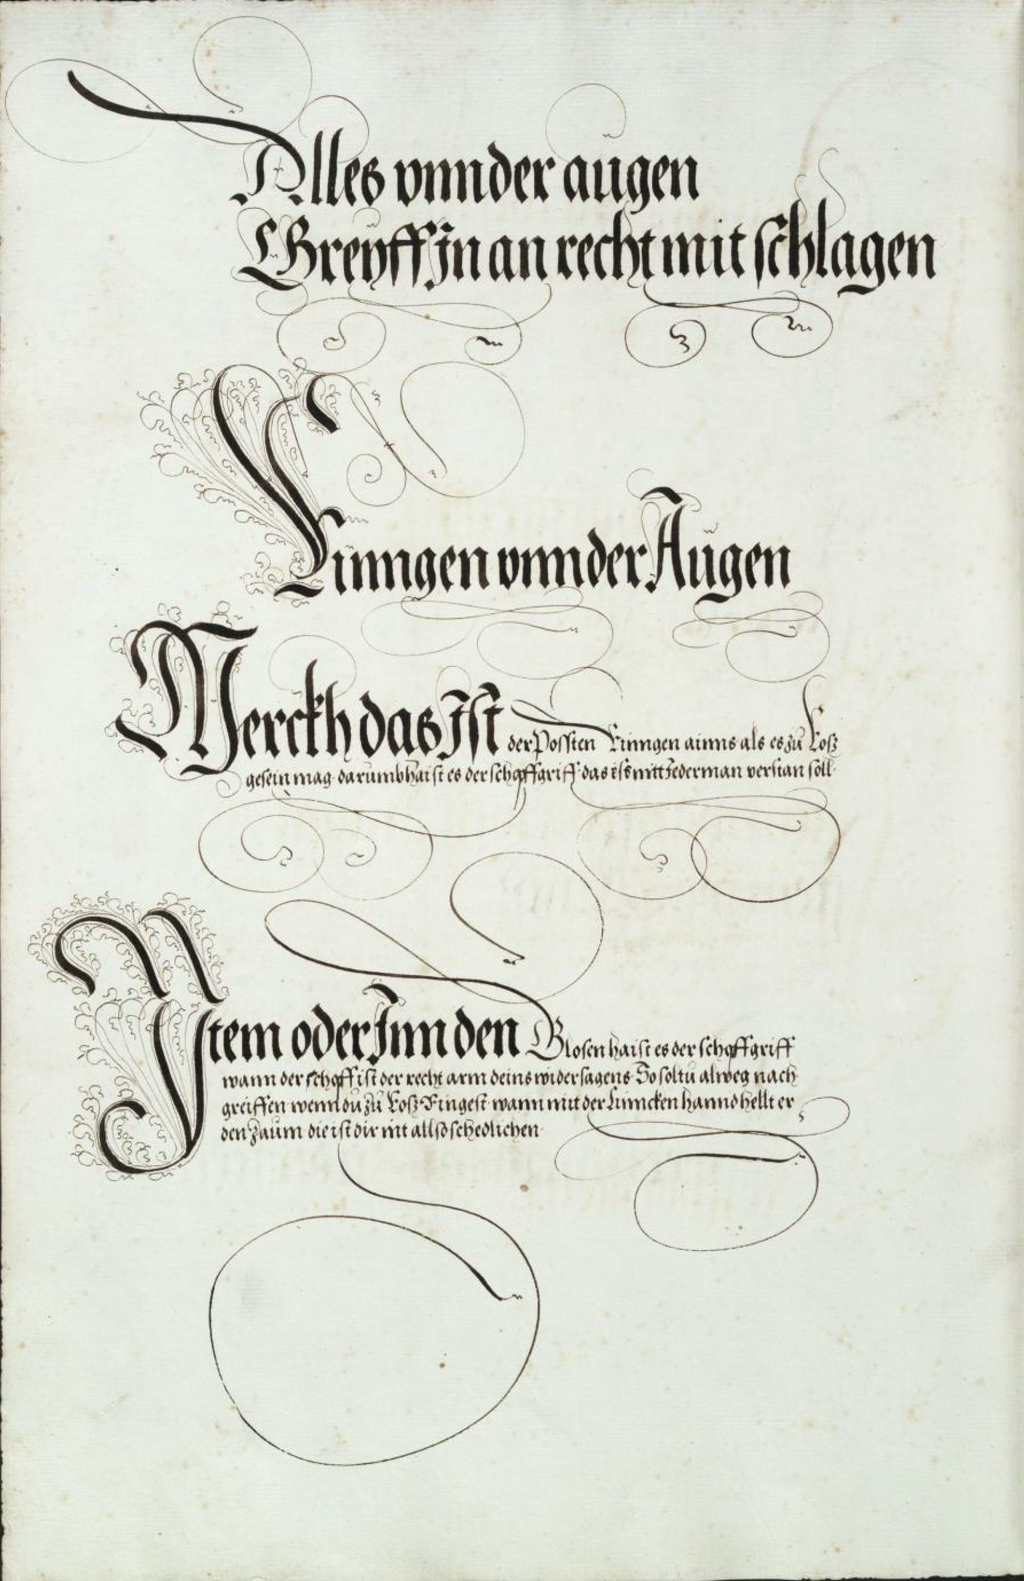 Alles vnnder augen
Greyff Jn an recht mit schlagen
Rinngen vnnder Augen
Merckh das Jst der Possten Rinngen ainns als es zu Roß
gesein mag darumb haist es der schoff griff das es nitt Jederman verstan soll
Ytem oder Jnn den Glosen haist es der schoff griff
wann der schoff ist der recht arm deins widersagens So soltu alweg nach
greiffen wenn du zu Roß Ringest wann mit der Linncken hannd hellt er
den Zaum die ist dir nit allso schedlichen